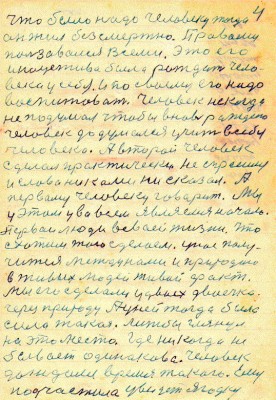 4
что было надо человеку тогда
он жил бессмертно. Правами
пользовался Всеми. Это его
инициатива была рождать чело-
века у себя. И по своему его надо
воспитовать. Человек никогда
не подумал чтобы вновь рождено
человек додумался учит всебя
человека. А второй человек
сделал практически не спросил
и словами ками ни сказал. А
первому человеку говорит. Мы
у этом у во всем являемся начало.
Первые люди вовсей жизни. Что
схотим того сделаем. у нас полу-
чится между нами и природою
в живых людей живой факт.
Мы его сделали у двоих двоечка.
через природу А у ней тогда было
сила такая. Хотьбы глянул
на это место. Где никогда не
бывает одинакова. Человек
дождался время такого. Ему
подчастила увидеть ягодку